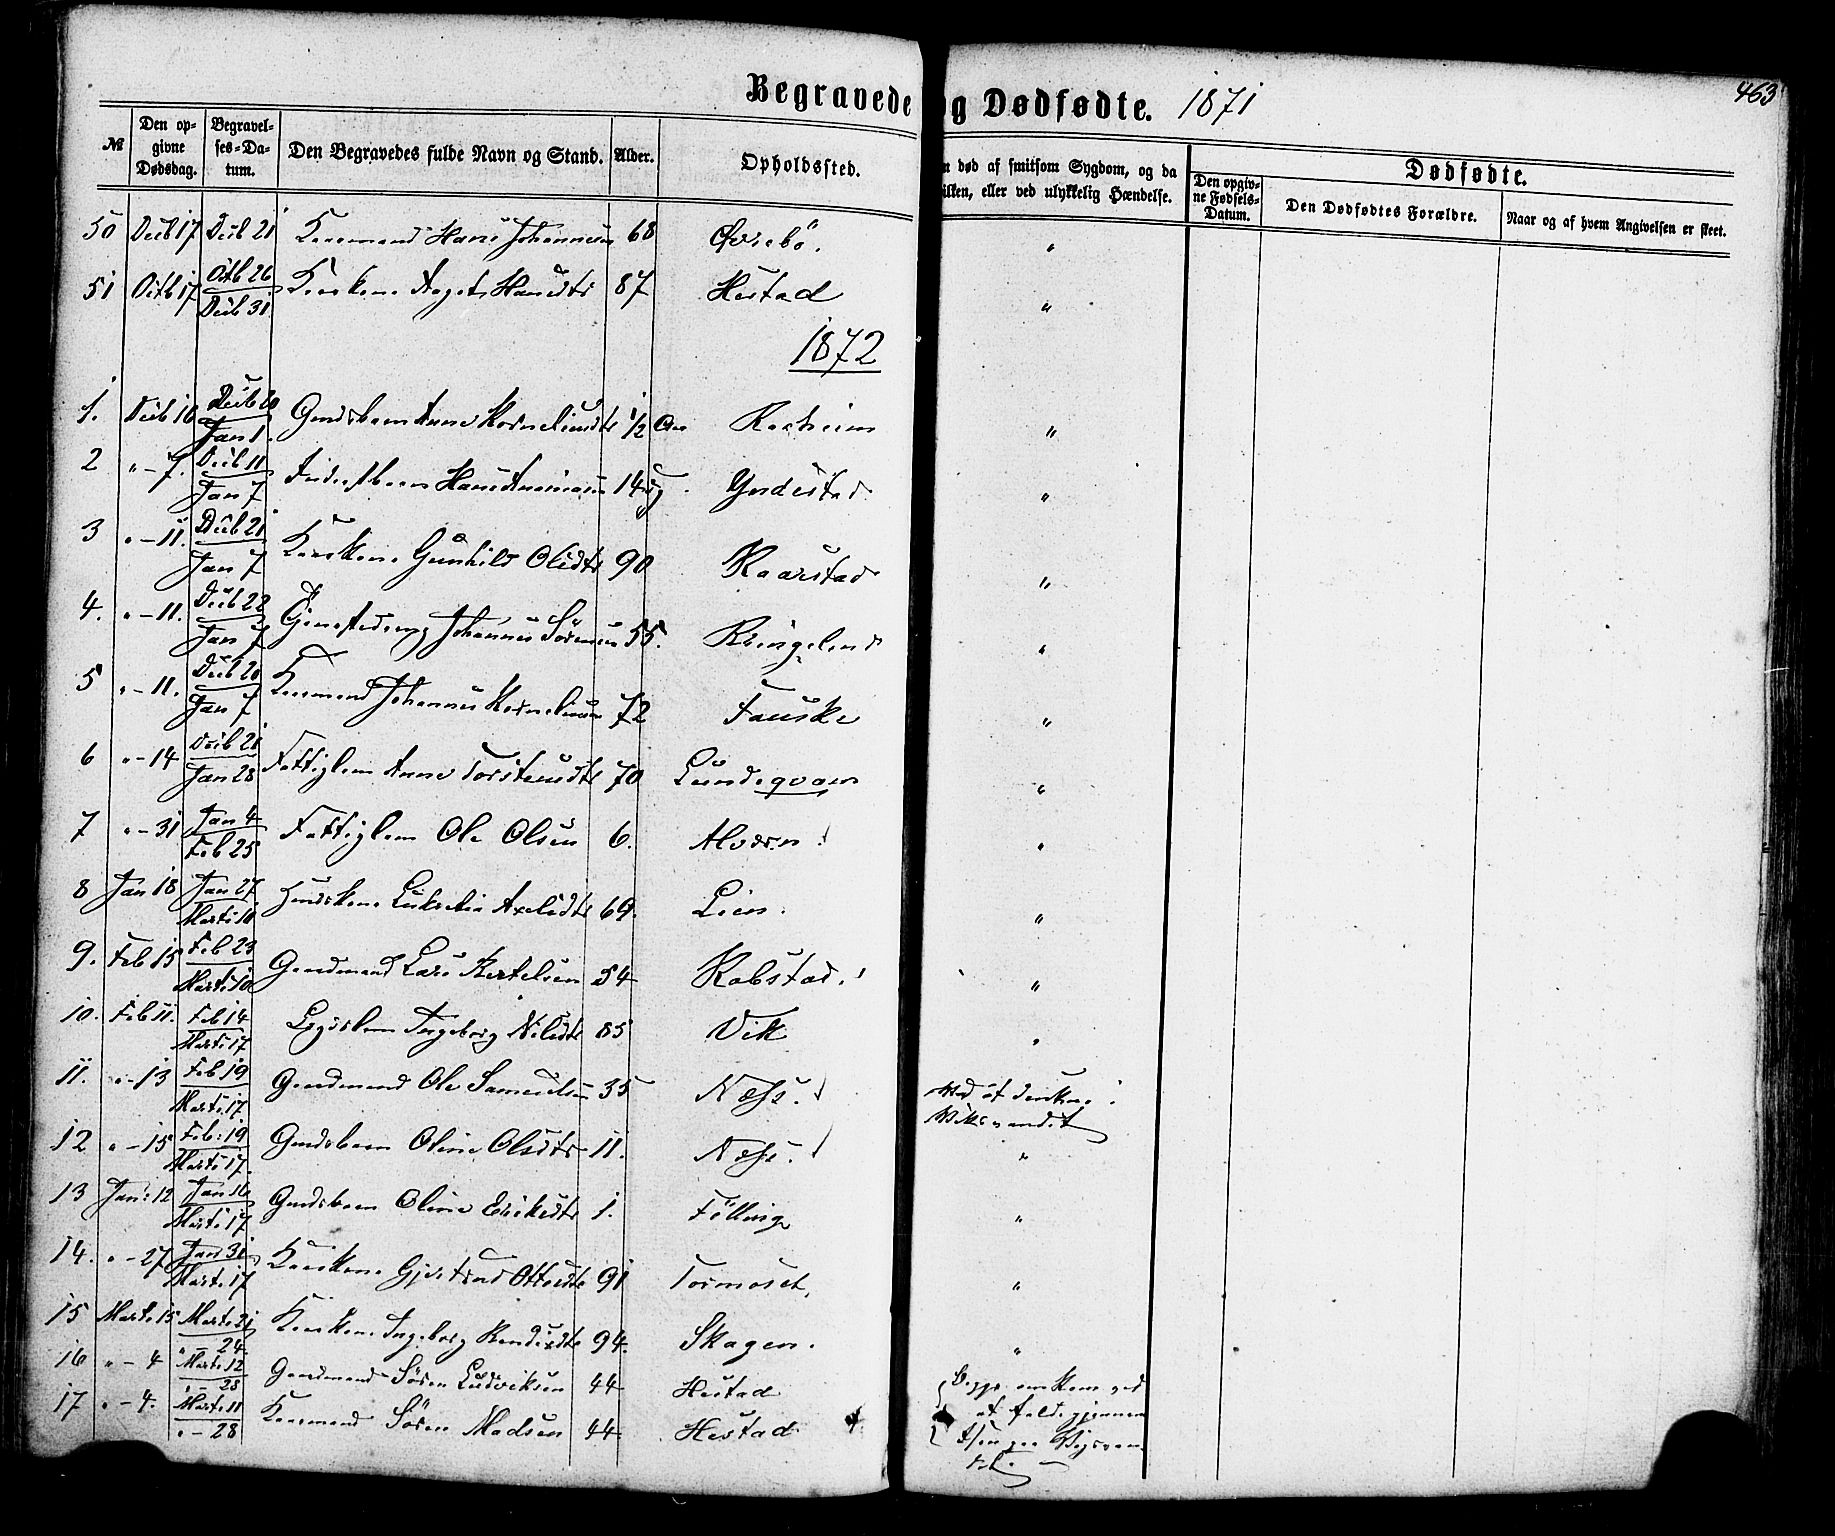 Begravede og Dødfødte. 1871
463
№ Den opgivne Dødsdag. Begravelses-Datum. Den Begravedes fulde Navn og Stand. Alder. Opholdssted.
død af smitsom Sygdom, og da
hvilken, eller ved ulykkelig Hændelse.
Dødfødte.
Den opgivne Fødsels-Datum. Den Dødfødtes Forældre. Naar og af hvem Angivelsen er skeet.
50 Decb 17 Decb 21 Kaarmand Hans Johannesen 68 Øvrebö. "
51 Octb 17 Octb 26 Decb 31 Kaarkone Hansdtr 87 Hestad "
1872
1. Decb 16 Decb 20 Jan 1. Gmdsbarn Anne Korneliusdtr 1/2 Aar "
2 " - 7. Decb 11 Jan 7 Hans 14 Yndestad "
3 " - 11. Decb 21 Jan 7 Kaarkone Gunhild Olsdtr 90 Kaarstad "
4. " - 11. Decb 22 Jan 7 Johannes Sörensen 55. Kringelend "
5 " - 11. Decb 20 Jan 7 Kaarmand Johannes Kornelius 72 Fauske "
6 " - 14 Decb 21 Jan 28 Fattiglem Anne Torsteinsdtr 70 Lundeqvam "
7 " - 31 Jan 4 Feb 25 Fattiglem Ole Olsen 6. Alvorn "
8 Jan 18 Jan 27 Marts 10 Huuskone Axelsdtr 69. Lien. "
9. Feb 15 Feb 23 Marts 10 Gaardmand Lars Bertelsen 54 Robstad. "
10. Feb 11. Feb 14 Marts 17 Lægdslem Ingeborg Nilsdtr 85 Vik "
11. " - 13 Feb 19 Marts 17 Gaardmand Ole Samuelsen 35 Næss. Ved at drukne i
Viksvandet
12 " - 15 Feb: 19 Marts 17. Gmdsbarn Oline Olsdtr 11. Næss. "
13 Jan: 12 Jan 16 Marts 17 Gmdsbarn Oline Eriksdtr 1. Fölling "
14. " - 27 Jan 31 Marts 17 Kaarkone Gjertrud Ottesdtr 91 Tormoset, "
15 Marts 15 Marts 21 " - 24. Kaarkone Ingeborg Bendixdtr 94. Skagen. "
16 " - 4 Marts 12 " - 28 Gaardmand Sören Ludviksen 44 Hestad Begge omkom ved
at falde gjennem
17 " - 4. Marts 11 " - 28 Kaarmand Sören Madsen 44. Hestad Isen paa